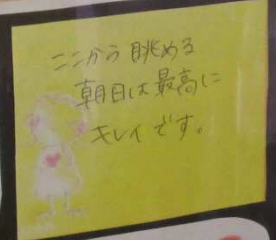 ここから眺める
朝日は最高に
キレイです。